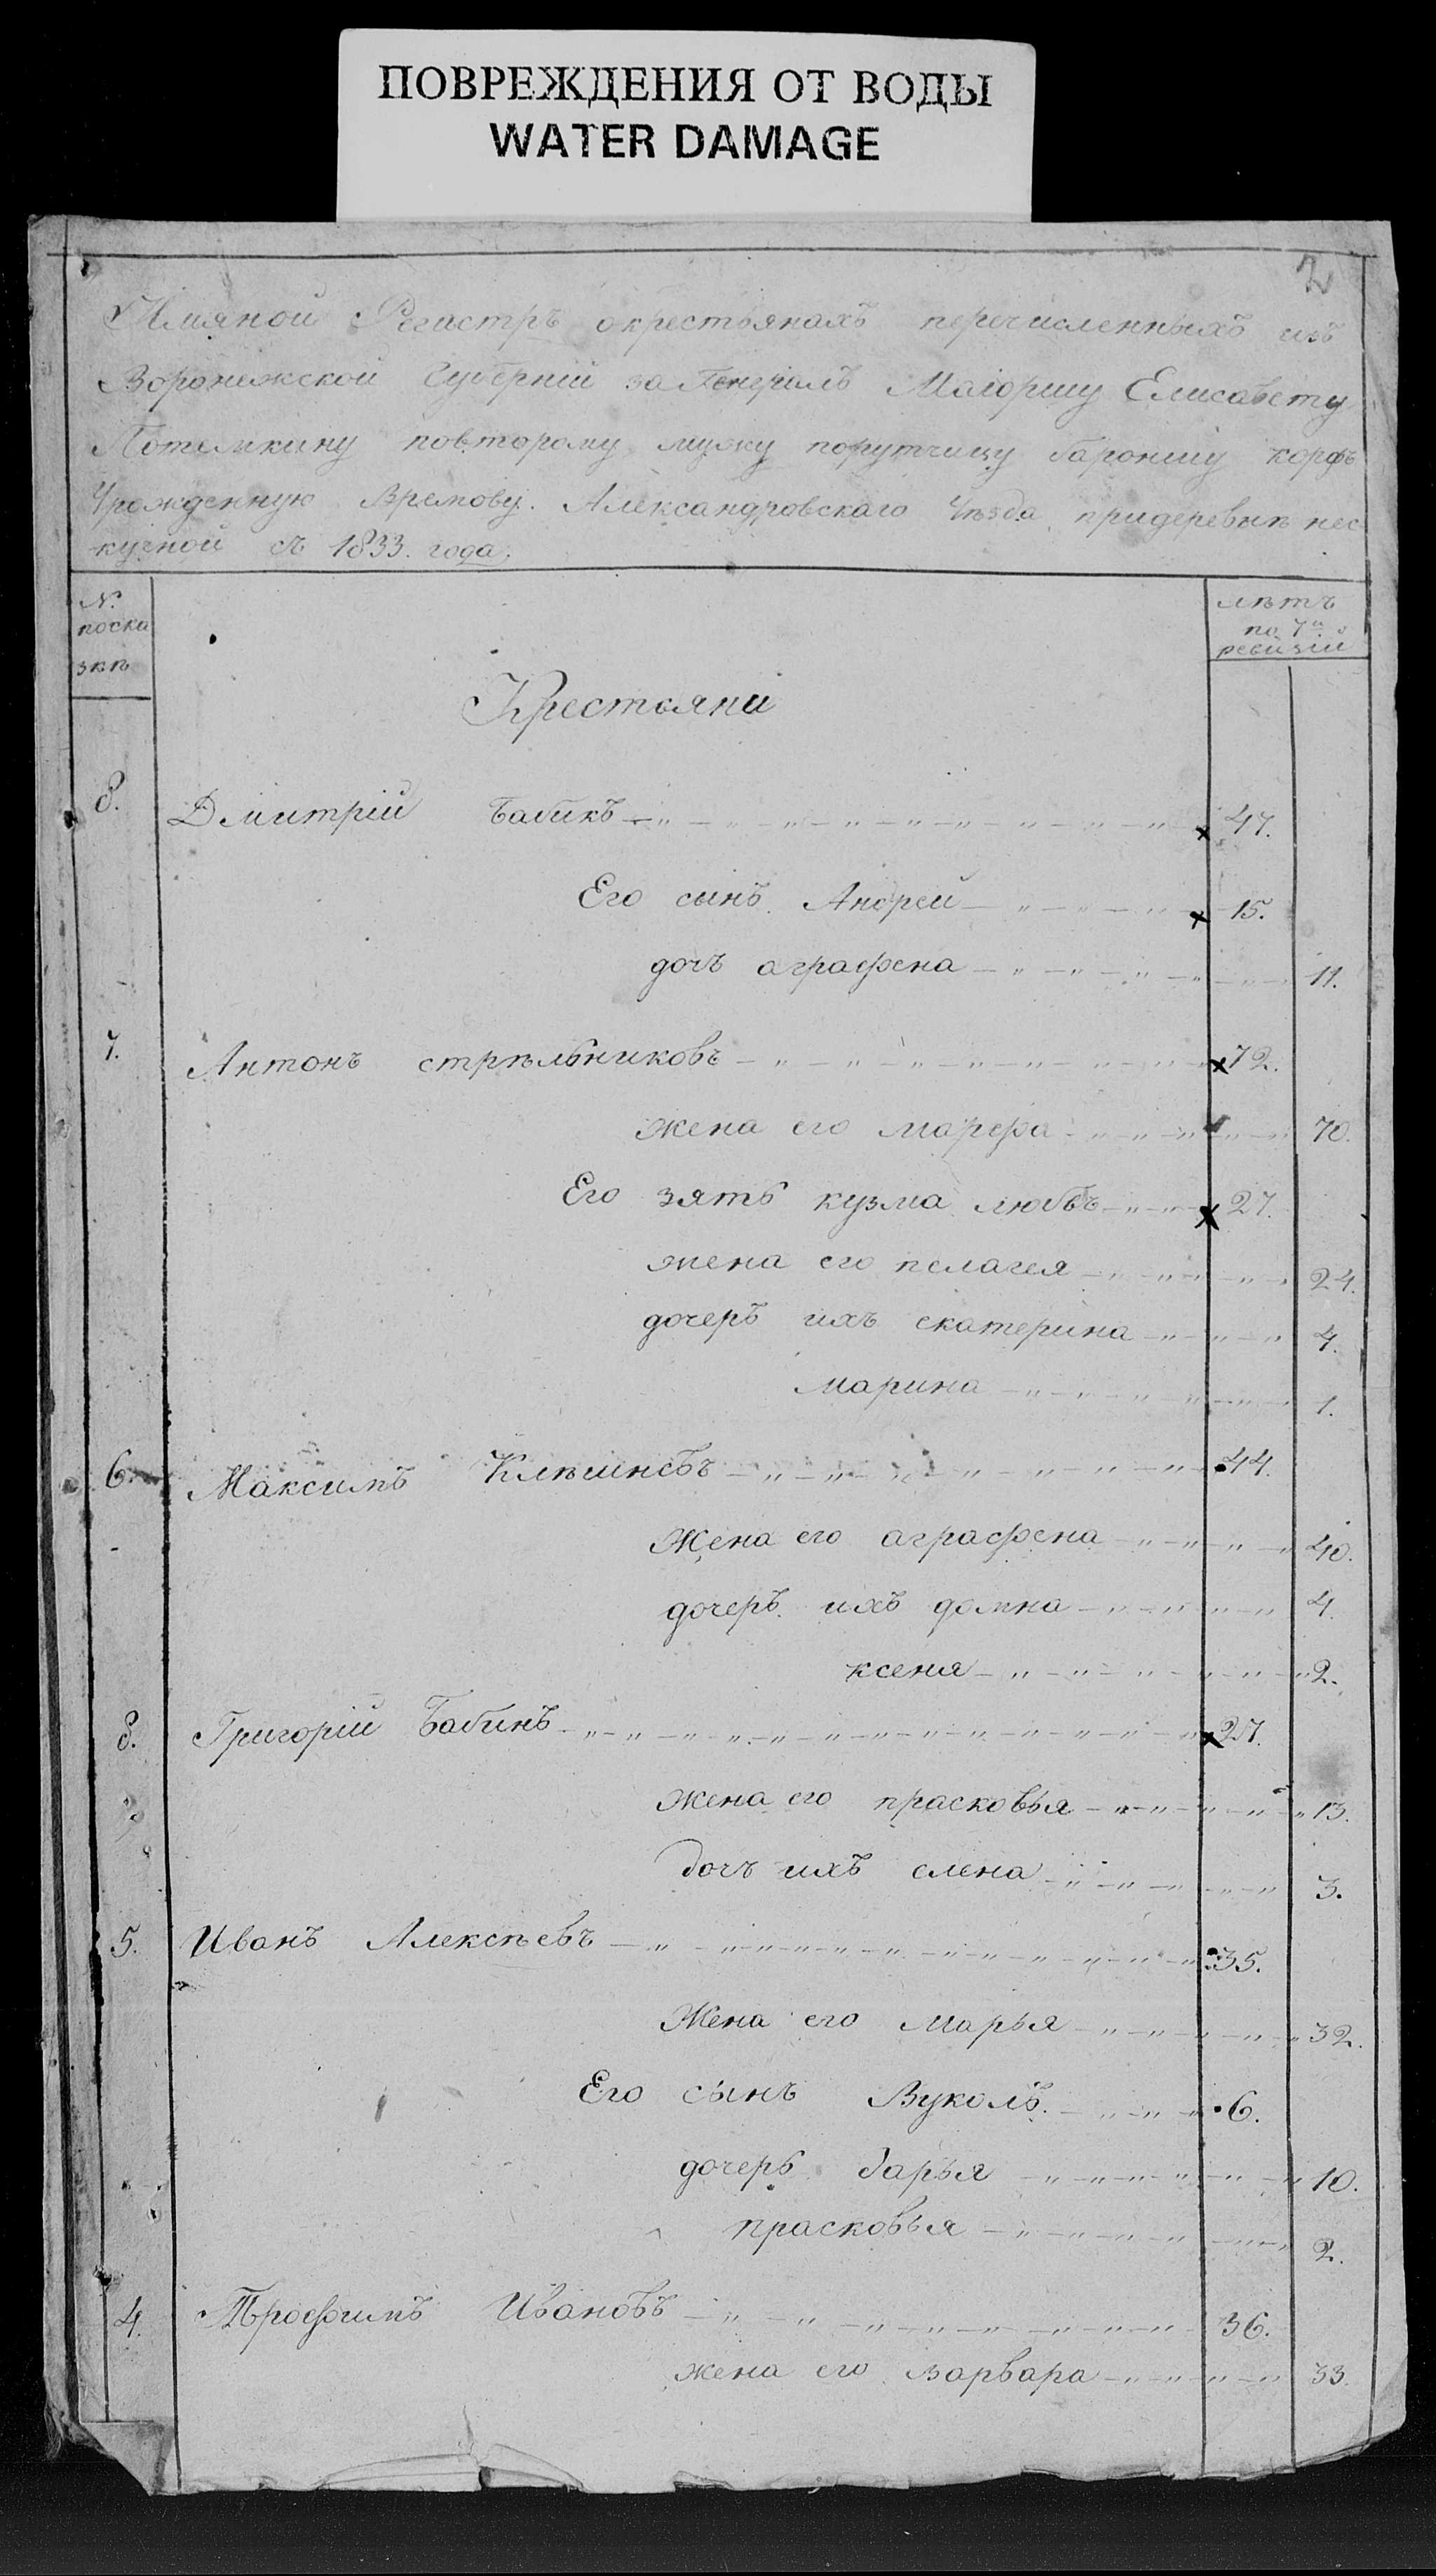 ПОВРЕЖДЕНИЯ ОТ ВОДЫ
WATER DAMAGE
2
Имяной Регистръ окрестьянахъ перечисленныхъ изъ
Воронежской Губерніи за Генералъ Маіоршу Елисавету
Потемкину повторому мужу порутчицу бароншу корфъ
Урожденную Времову. Александровскаго Уѣзда придеревнѣ нес
кучной съ 1833. года.
№.
поска
зкѣ
лѣтъ
по 7й
ревизіи
Крестьяни
8. Дмитрій Бабикъ 47.
Его сынъ Андрей 15.
дочъ аграфена 11.
7. Антонъ стрѣльниковъ 72.
жена его марфа 70.
Его зять кузма любъ 27.
жена его пелагея 24.
дочеръ ихъ екатерина 4.
марина 1.
6. Максимъ 44.
Жена его аграфена 40.
дочеръ ихъ домна 4.
ксеня 2.
8. Григорій Бабинъ 27.
жена его прасковья 13.
дочъ ихъ елена 3.
5. Иванъ Алексѣевъ 35.
Жена его марья 32.
Его сынъ Вуколъ 6.
дочерь дарья 10.
прасковья 2.
4. Трофимъ Ивановъ 36.
жена его варвара 33.